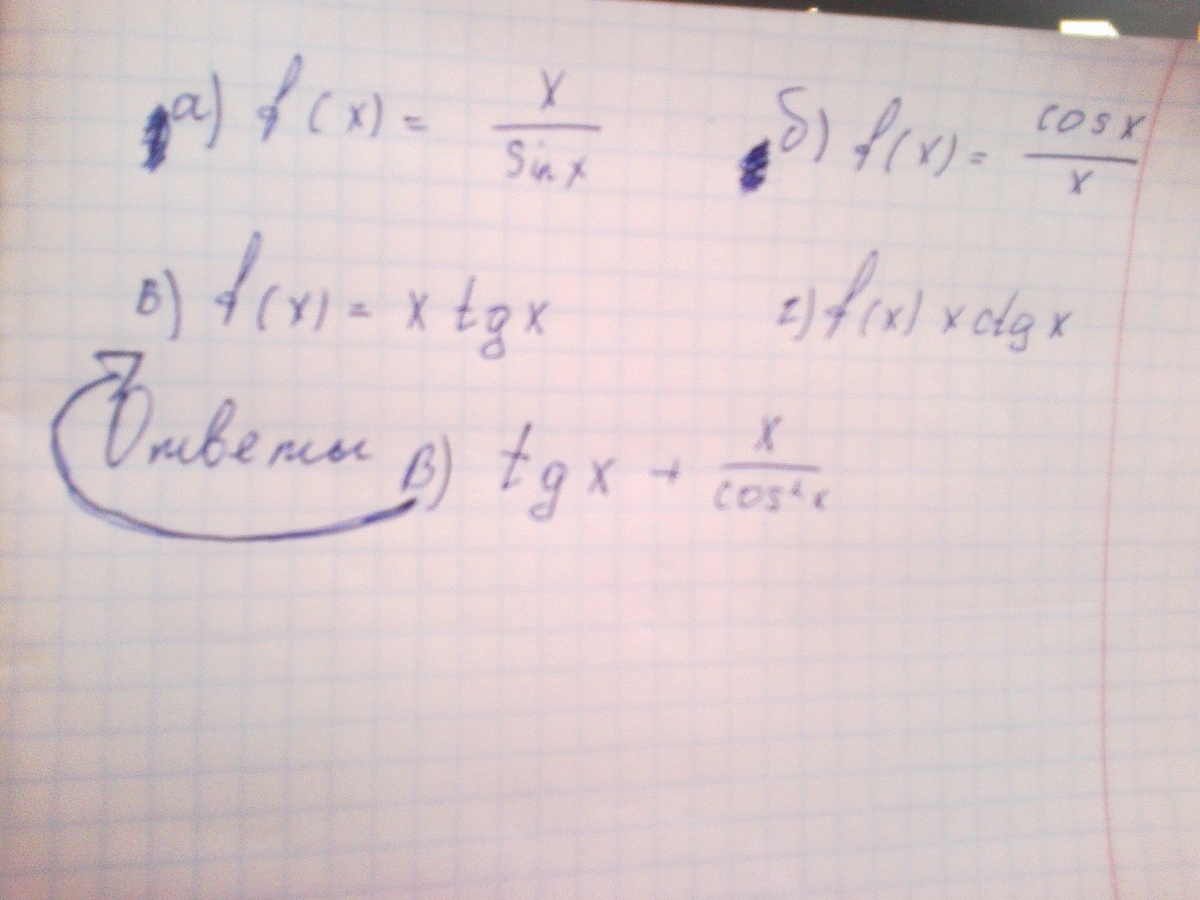 а) f(x) = x / sin x б) f(x) = cos x / x
в) f(x) = x tg x г) f(x) x ctg x
Ответы В) tg x + x / cos² x